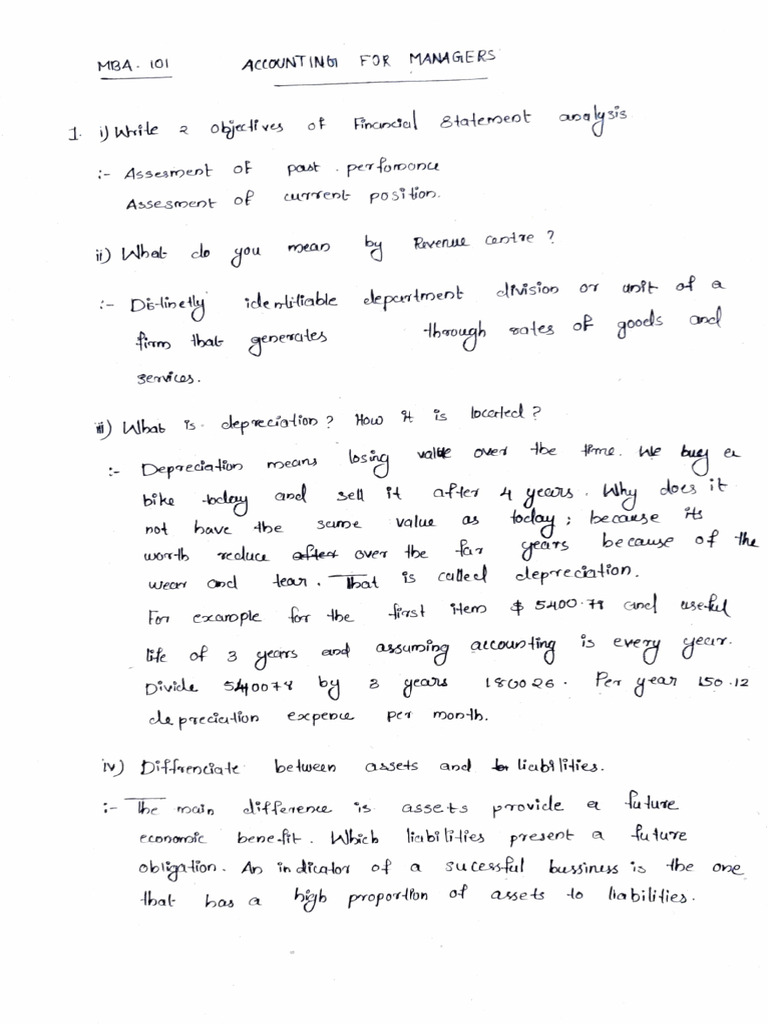 MBA. 101 ACCOUNTING FOR MANAGERS
1. i) Write 2 objectives of Financial Statement analysis
:- Assesment of past. perfomance
Assesment of current position.
ii) What do you mean by Revenue centre?
:- Distinetly identifiable department division or unit of a
firm that generates through sates of goods and
services.
iii) What is depreciation? How it is located?
:- Depreciation means losing value over the time. We buy a
bike today and sell it after 4 years. Why does it
not have the same value as today; because its
worth reduce after over the far years because of the
wear and tear. That is called depreciation.
For example for the first item $ 5400.78 and useful
life of 3 years and assuming accounting is every year.
Divide 540078 by 3 years 180026. Per year 150.12
depreciation expence per month.
iv) Diffrenciate between assets and liabilities.
:- The main difference is assets provide a future
economic benefit. Which liabilities present a future
obligation. An indicator of a sucessful bussiness is the one
that has a high proportion of assets to liabilities.